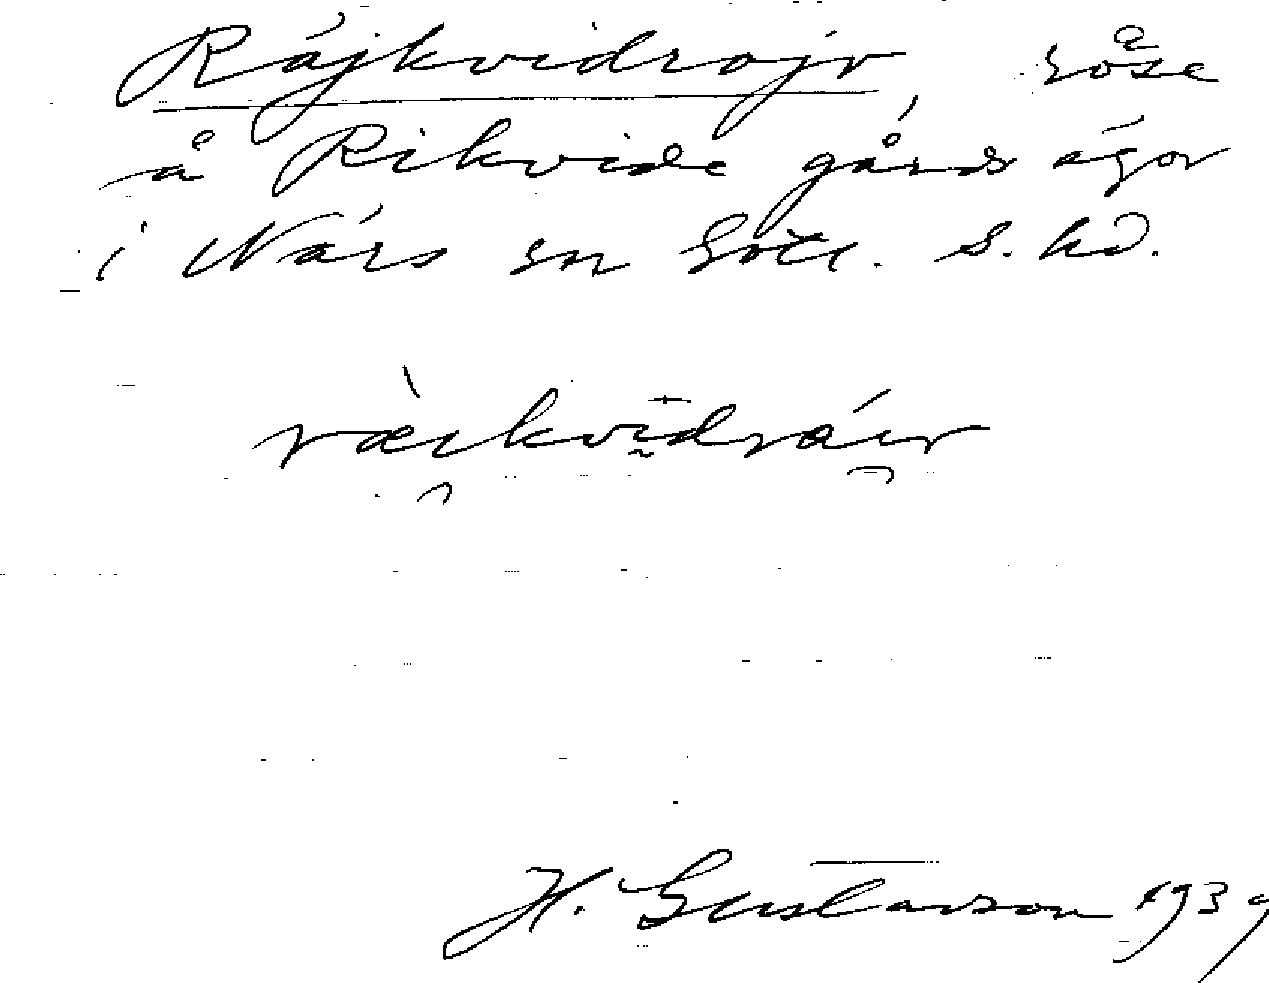 Räjkvidrojv, röse
å Rikvide gårds ägor
i Närs sn Gotl. S. hd.
ræi̯kvīdrái̯r
H. Gustavson 1939